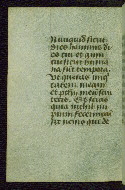 Nunquid sicut
dies hominis di
es tui et anni
tui sicut huma
na sūt tempora.
Ut queras iniq
tatem meam
et pctm meū scru
teris. Et scias
quia nichil im
pium fecerim cū
sit nemo qui de